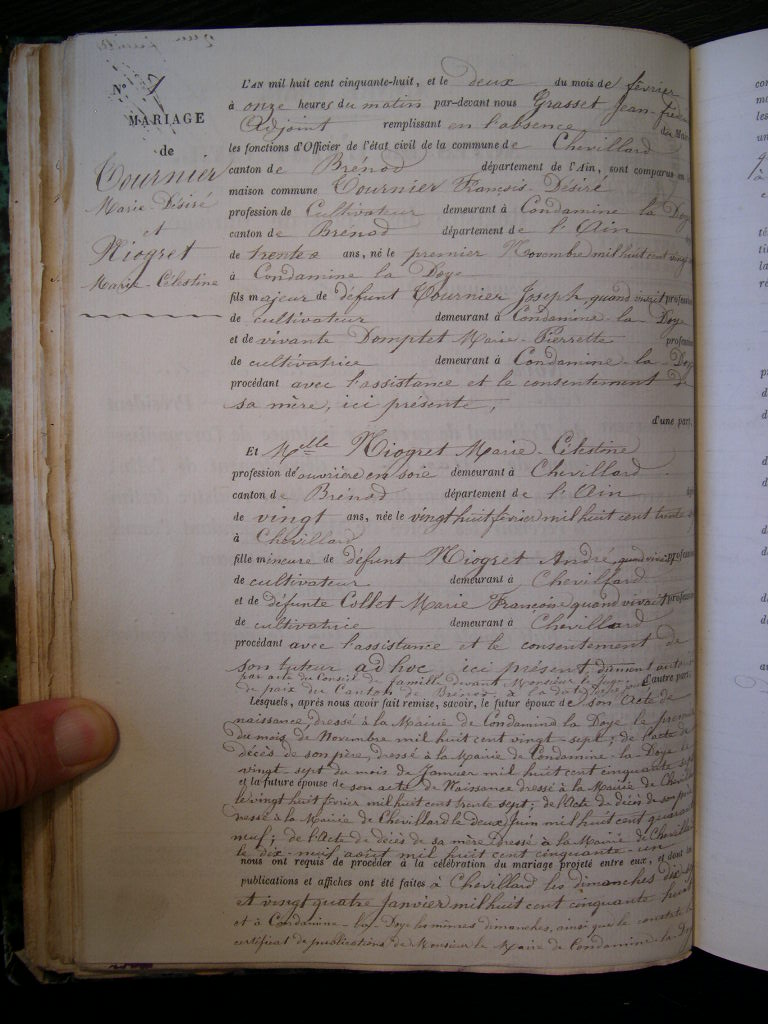 N° 1
MARIAGE
de
Tournier
Marie Désiré
et
Niogret
Marie-Célestine
L'AN mil huit cent cinquante-huit, et le deux du mois de février
à onze heures du matin par-devant nous Grasset Jean-
Adjoint remplissant en l'absence du Maire
les fonctions d'Officier de l'état civil de la commune de Chevillard
canton de Brénod département de l'Ain, sont comparus en
maison commune Tournier François-Désiré
profession de Cultivateur demeurant à Condamine la Doye
canton de Brénod département de l'Ain
de trente ans, né le premier Novembre mil huit cent vingt
à Condamine la Doye
fils majeur de défunt Tournier Joseph quand vivait profession
de cultivateur demeurant à Condamine-la-Doye
et de vivante Domptet Marie-Pierrette profession
de cultivatrice demeurant à Condamine-la-Doye
procédant avec l'assistance et le consentement de
sa mère, ici présente,
d'une part.
Et Melle Niogret Marie-Célestine
profession d'ouvrière en soie demeurant à Chevillard
canton de Brénod département de l'Ain
de vingt ans, née le vingt huit février mil huit cent trente
à Chevillard
fille mineure de défunt Niogret André quand vivait profession
de cultivateur demeurant à Chevillard
et de défunte Collet Marie Françoise quand vivait profession
de cultivatrice demeurant à Chevillard
procédant avec l'assistance et le consentement de
son tuteur ad hoc, ici présent dûment autorisé
par acte du Conseil de famille devant Monsieur le Juge d'autre part.
de paix du Canton de Brénod, à la date
Lesquels, après nous avoir fait remise, savoir, le futur époux de son Acte de
naissance, dressé à la Mairie de Condamine la Doye le premier
du mois de Novembre mil huit cent vingt-sept; de l'acte de
décès de son père, dressé à la Mairie de Condamine-la-Doye le
vingt-sept du mois de Janvier mil huit cent cinquante sept
et la future épouse de son acte de Naissance dressé à la Mairie de Chevillard
le vingt huit février mil huit cent trente sept; de l'Acte de décès de son père
dressé à la Mairie de Chevillard le deux Juin mil huit cent quarante
neuf; de l'Acte de décès de sa mère dressé à la Mairie de Chevillard
le dix-neuf août mil huit cent cinquante-un
nous ont requis de procéder à la célébration du mariage projeté entre eux, et dont les
publications et affiches ont été faites à Chevillard les dimanches dix-sept
et vingt quatre Janvier mil huit cent cinquante huit
et à Condamine-la-Doye les mêmes dimanches, ainsi que le constate le
certificat de publications de Monsieur le Maire de Condamine-la-Doye